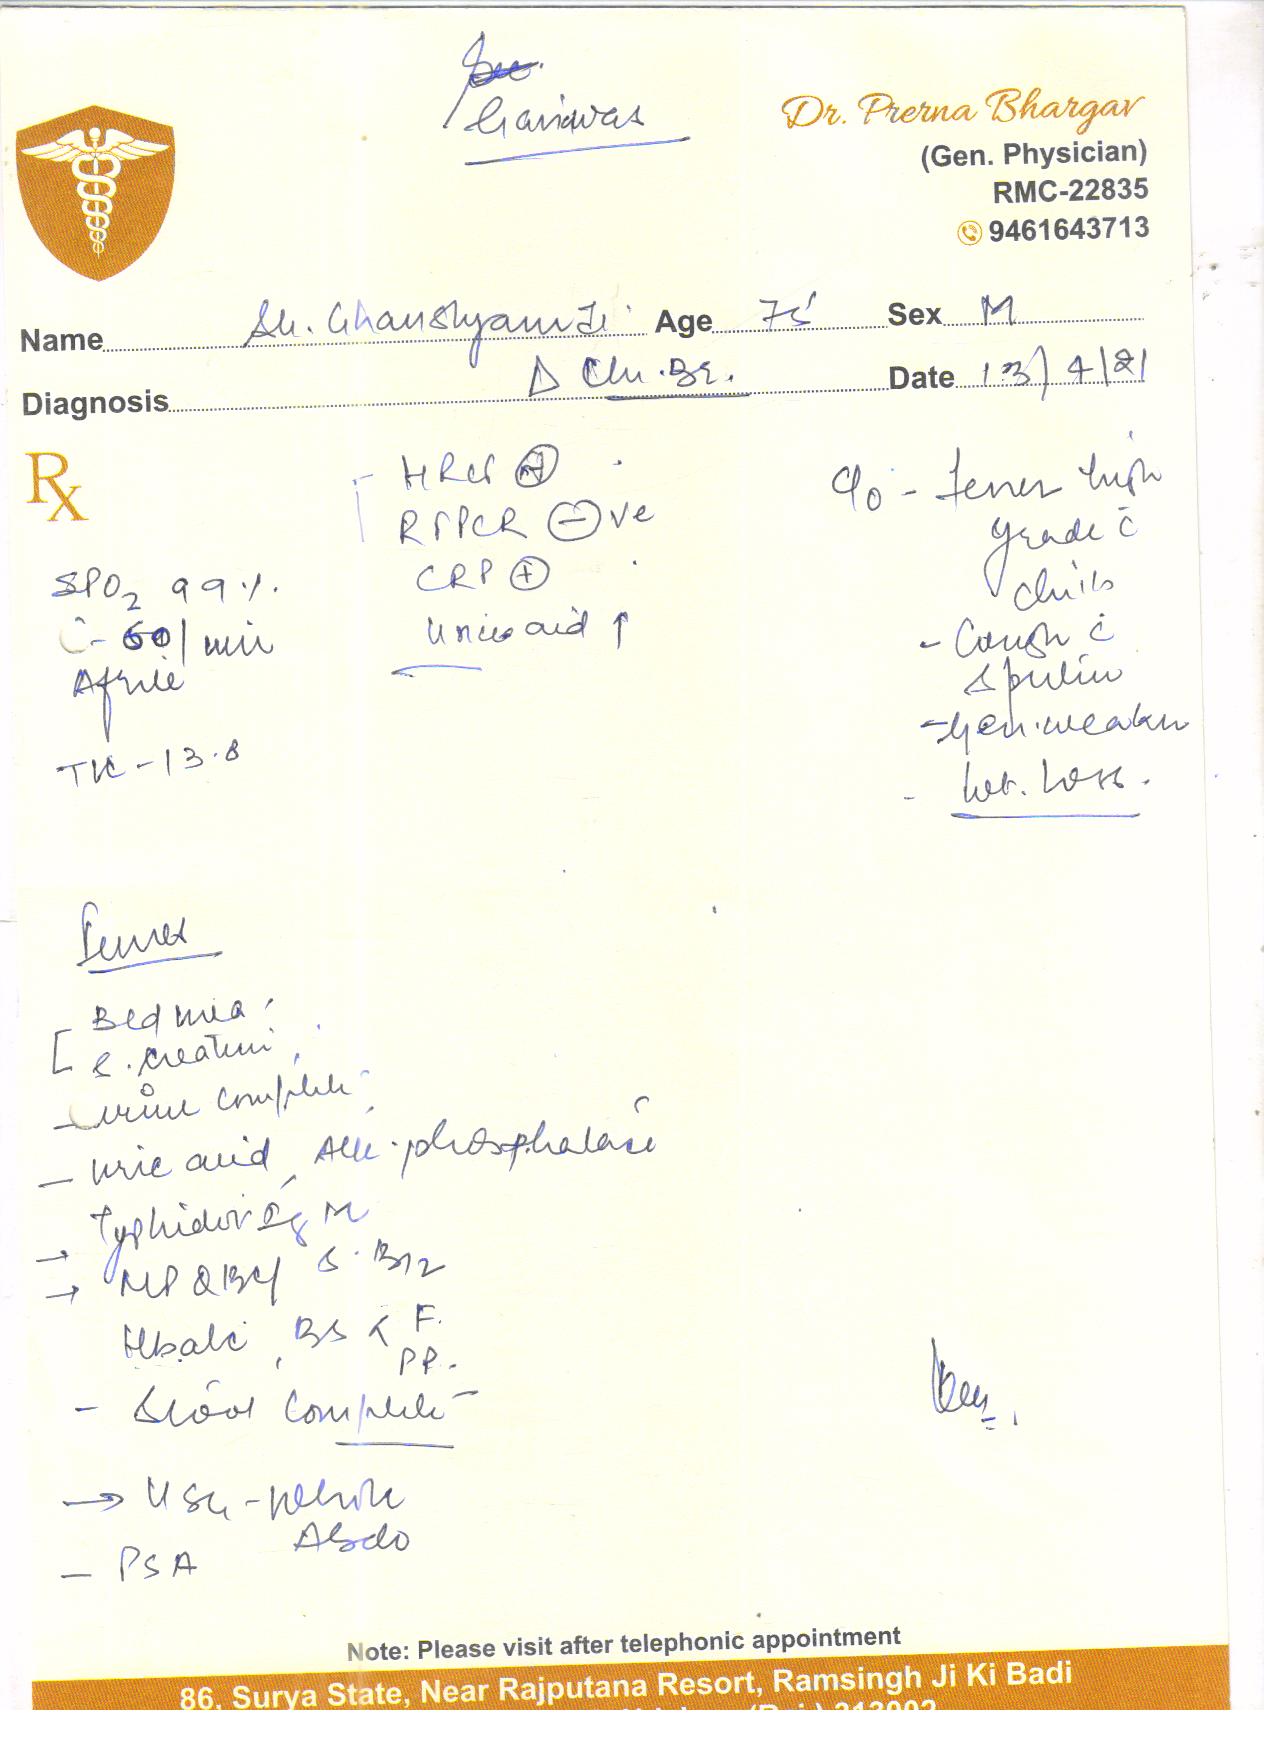 Dr. Prerna Bhargav
(Gen. Physician)
RMC-22835
9461643713
Name Sh. Ghanshyam Ji Age 75 Sex M
Diagnosis Δ Date 13/4/21
Rx
HRCT
RTPCR ⊖ve
CRP ⊕
Uric acid ↑
C/o - Fever high
grade c̄
chills
- Cough c̄
Sputum
- Gen. weakn
- Wt. Loss.
SPO2 99%.
60/min
Afrile
TLC - 13.8
Bld urea
S. creatini
- urine complete
- uric acid, Alk. phosphatase
→ Typhidot Ig M
→ MP QBC S. B12
Hba1c, BS < F.
PP.
- Stool Complete
→ USG - Whole
Abdo
- PSA
Note: Please visit after telephonic appointment
86, Surya State, Near Rajputana Resort, Ramsingh Ji Ki Badi